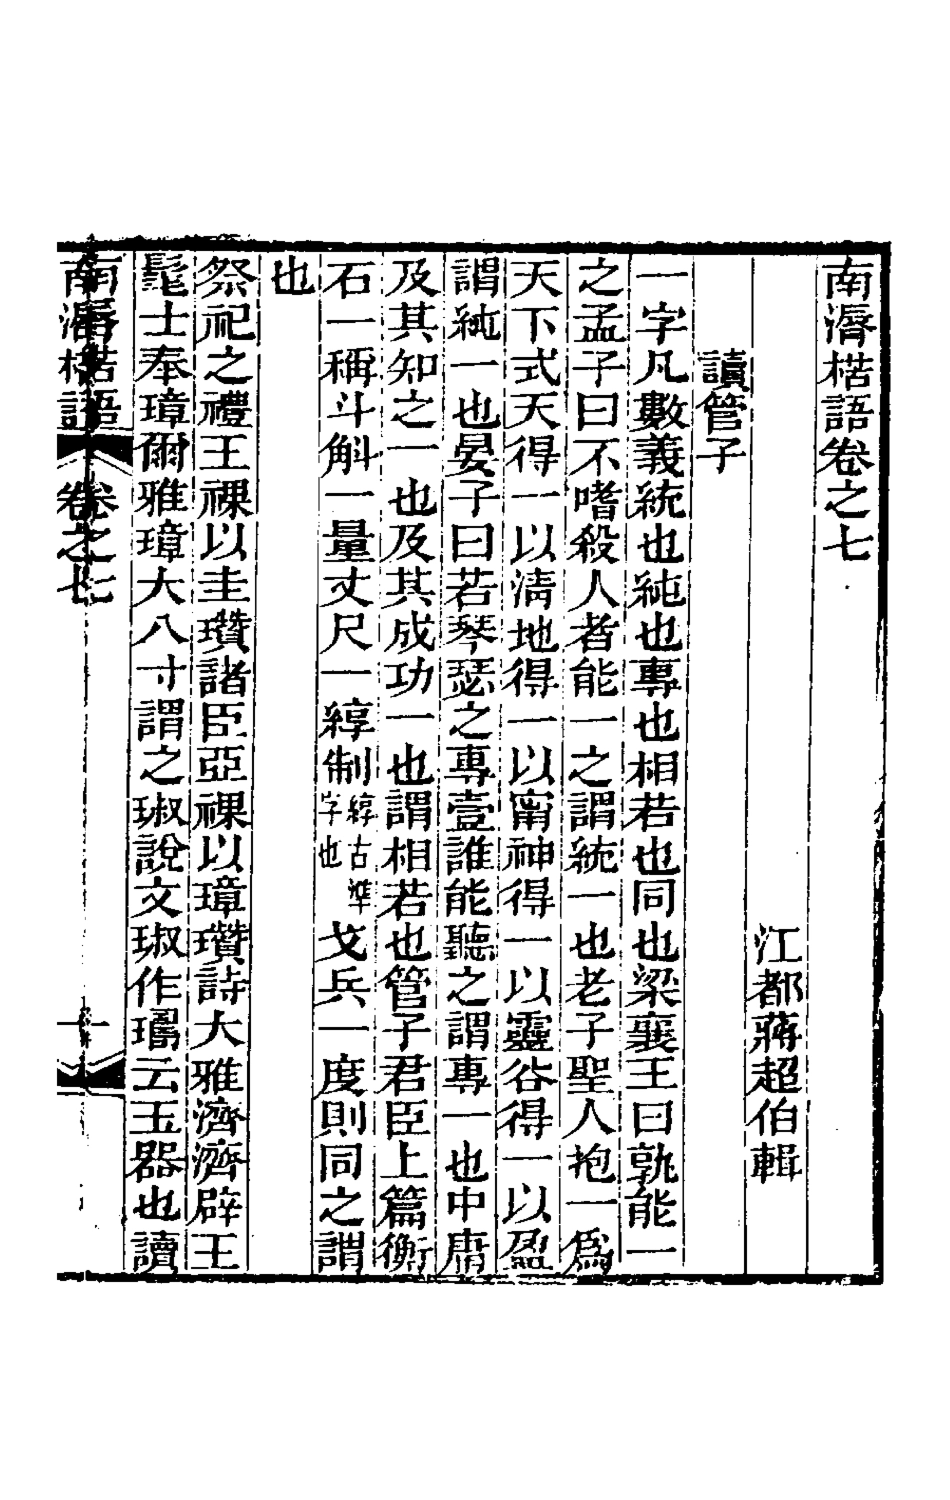 南漘楛語卷之七
江都蔣超伯輯
讀管子
一字凡數義統也純也專也相若也同也梁襄王曰孰能一
之孟子曰不嗜殺人者能一之謂統一也老子聖人抱一爲
天下式天得一以清地得一以甯神得一以靈谷得一以盈
謂純一也晏子曰若琴瑟之專壹誰能聽之謂專一也中庸
及其知之一也及其成功一也謂相若也管子君臣上篇衡
石一稱斗斛一量丈尺一綧制綧古準字也戈兵一度則同之謂
也
祭祀之禮王祼以圭瓚諸臣亞祼以璋瓚詩大雅濟濟辟王
髦士奉璋爾雅璋大八寸謂之琡說文琡作璹云玉器也讀
南漘楛語 卷之七 一